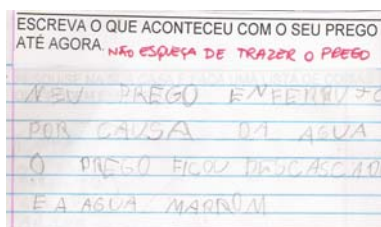 ESCREVA O QUE ACONTECEU COM O SEU PREGO
ATÉ AGORA. NÃO ESQUEÇA DE TRAZER O PREGO
MEU PREGO ENFERRUJO
POR CAUSA DA AGUA
O PREGO FICOU DESCASCADO
E A AGUA MARROM